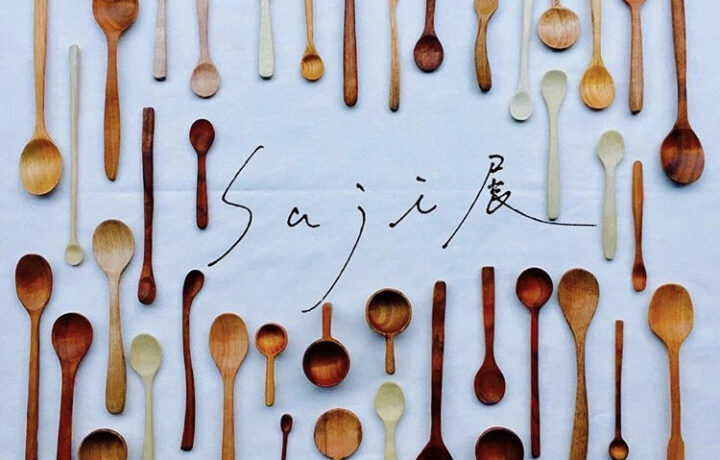 Saji展